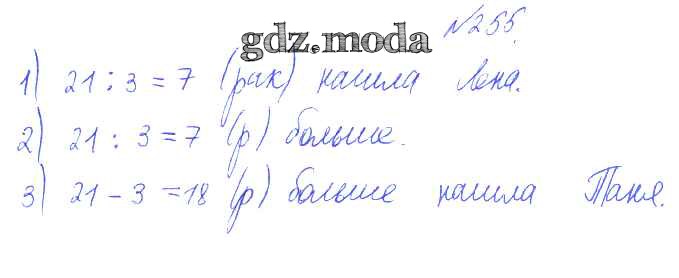 №255.
gdz.moda
1) 21 : 3 = 7 (рак) нашла Лена.
2) 21 : 3 = 7 (р) больше.
3) 21 - 3 = 18 (р) больше нашла Таня.